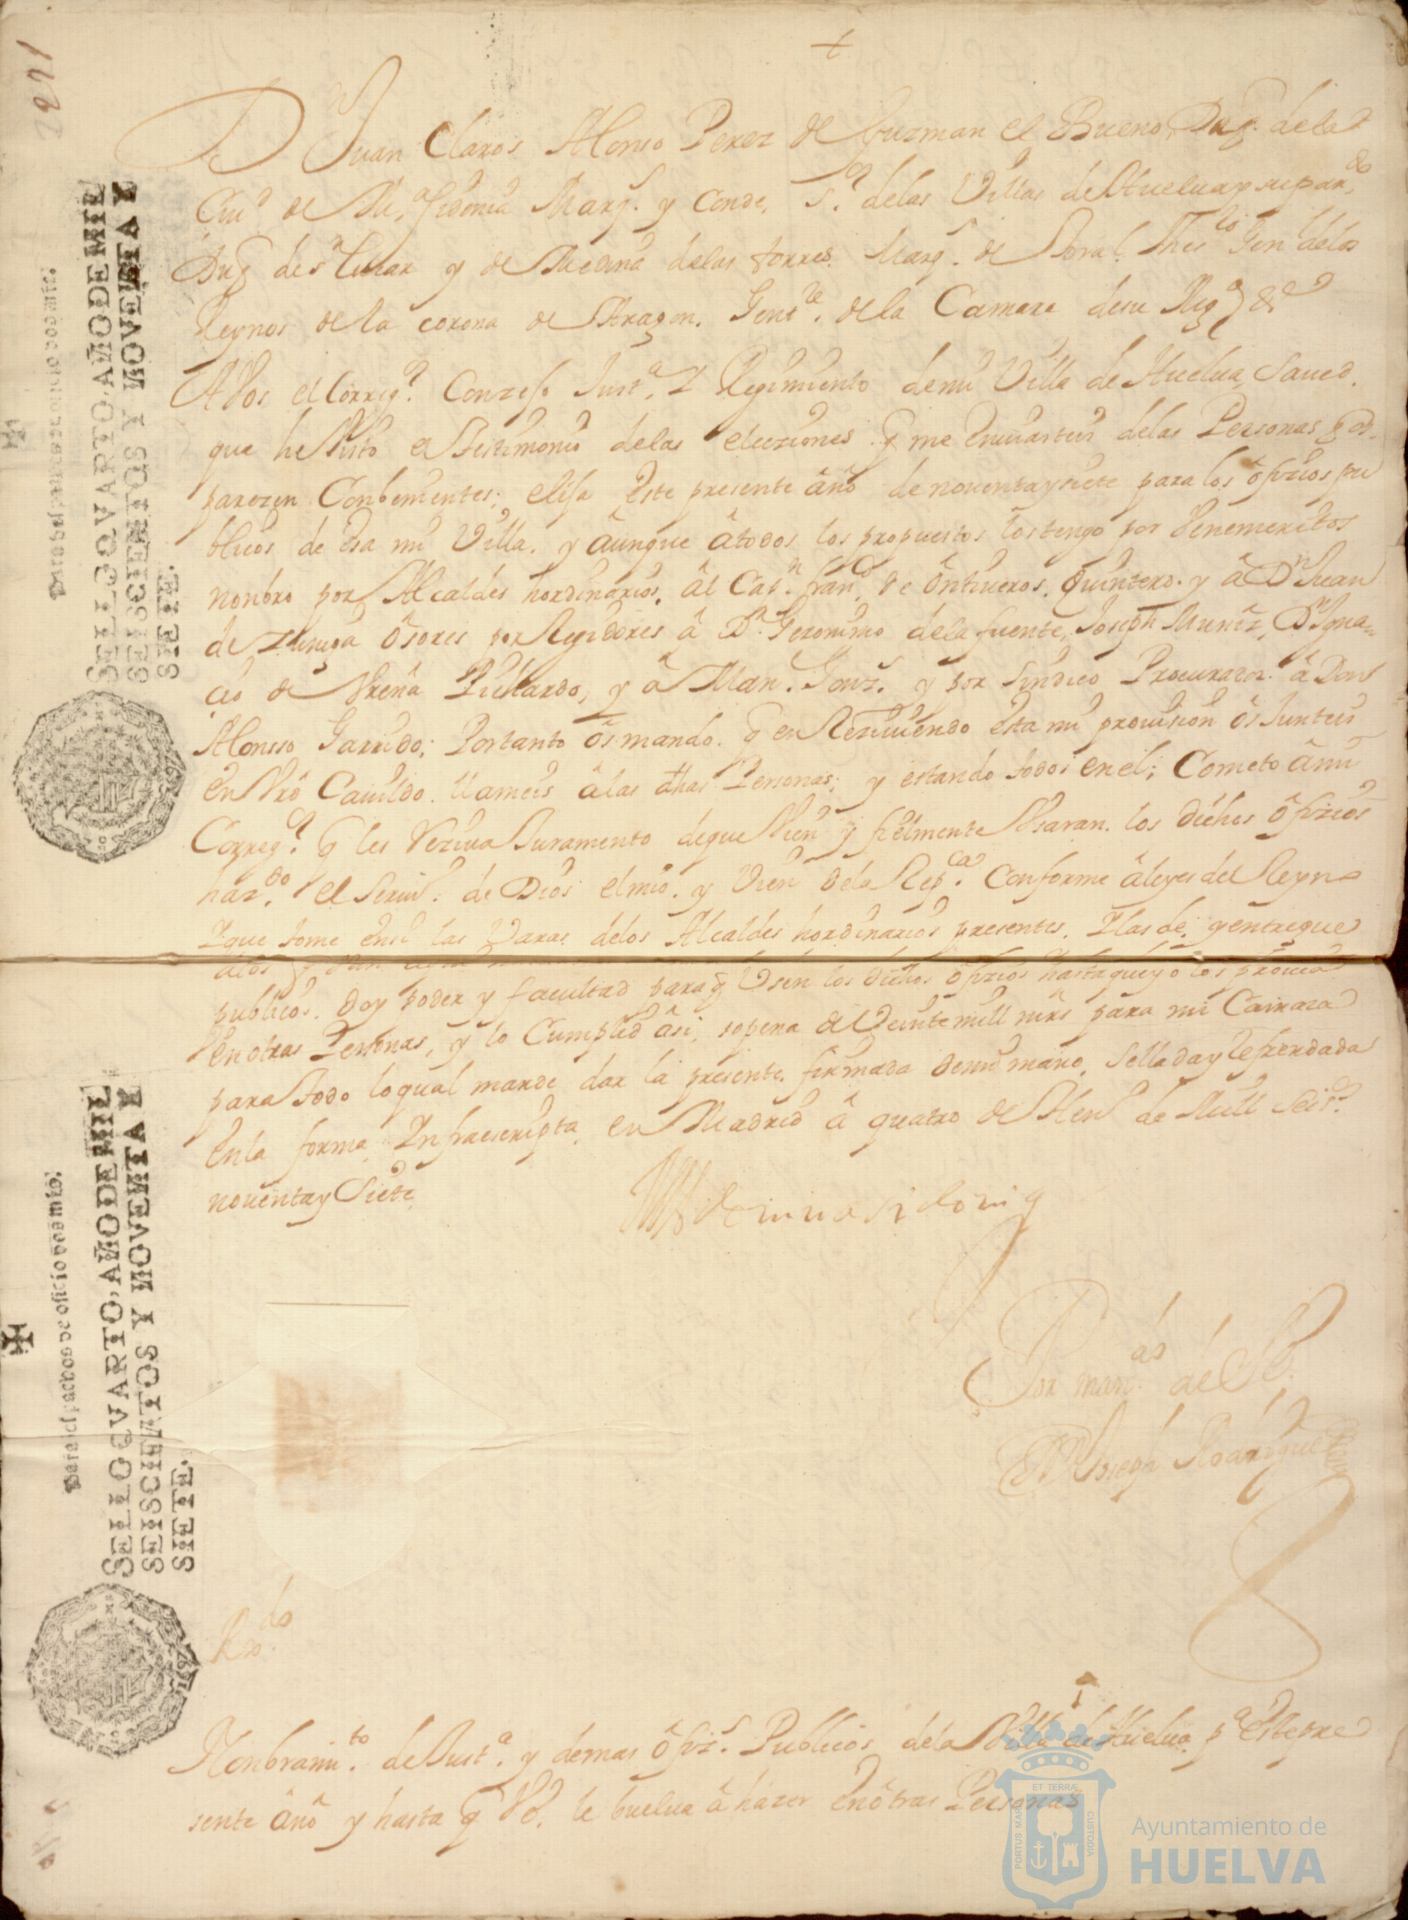 221
Para despachos de oficio dos mrs.
SELLO QVARTO, AÑO DE MIL
SEISCIENTOS Y NOVENTA Y
SIETE.
Dn Juan Claros Alonso Perez de Guzman el Bueno, Duq. de la
Ciud. de Mna. Sidonia Marq. y Conde, Sr. de las Villas de Huelua y su par.do
Duq de Sn Lucar y de Medina de las torres. Marq. de Toral. Thes.ro Gen de los
Reynos de la corona de Aragon. Gent.l de la Camara de su Mag.d &.a
A Vos el Correg.r Conzejo Just.a Y Regimiento de mi Villa de Huelua, Saued.
que he Visto el testimonio de las elecziones q me Inuiasteis de las Personas q os
parezen Conbenientes; elija Este presente año de nouenta y siete para los ofizios pu
blicos de Esa mi Villa. y aunque a todos los propuestos los tengo por Venemeritos
nonbro por Alcaldes hordinarios, al Cap.n fran.co de Ontiueros. Quintero. y a Dn Juan
de Zuniga Osores por Rexidores a Dn Geronimo de la fuente, Joseph Muñiz, Dn Igna=
cio de Vreña Pichardo, y a Man. Gonz. y por Sindico Procurador a Don
Alonso Garrido; Portanto os mando. q en Reziuiendo esta mi prouision os Junteis
en Vro Cauildo. llameis a las dhas Personas; y estando todos en el; Cometo a mi
Correg.r q les Reziua Juramento de que Vien y fielmente Vsaran. los dichos ofizios
haz.do el Seruiº. de Dios el mio. y Vien de la Rep.ca Conforme a leyes del Reyno
Y que tome en si las Varas. de los Alcaldes hordinarios presentes. Y las de, y entregue
publicos. doy poder y facultad para q Vsen los dichos ofizios hasta que yo los prouea
en otras Personas, y lo Cumplid asi, so pena de Veinte mill mrs para mi Camara
para todo lo qual mande dar la presente firmada de mi mano, Sellada y Refrendada
en la forma Infraescripta, en Madrid a quatro de Hen.º de Mill Seis.s
nouenta y Siete
Medinasidonia
Por man.do de S.E.
Dn Joseph Rodriguez
Rx.do
Nonbram.to de Just.a y demas ofiz.s Publicos de la Villa de Huelua p.a Este pre
sente año y hasta q VE. le buelua a hazer En otras Personas
Para despachos de oficio dos mrs.
SELLO QVARTO, AÑO DE MIL
SEISCIENTOS Y NOVENTA Y
SIETE.
1697
PORTUS MARIS ET TERRÆ CUSTODIA
Ayuntamiento de
HUELVA